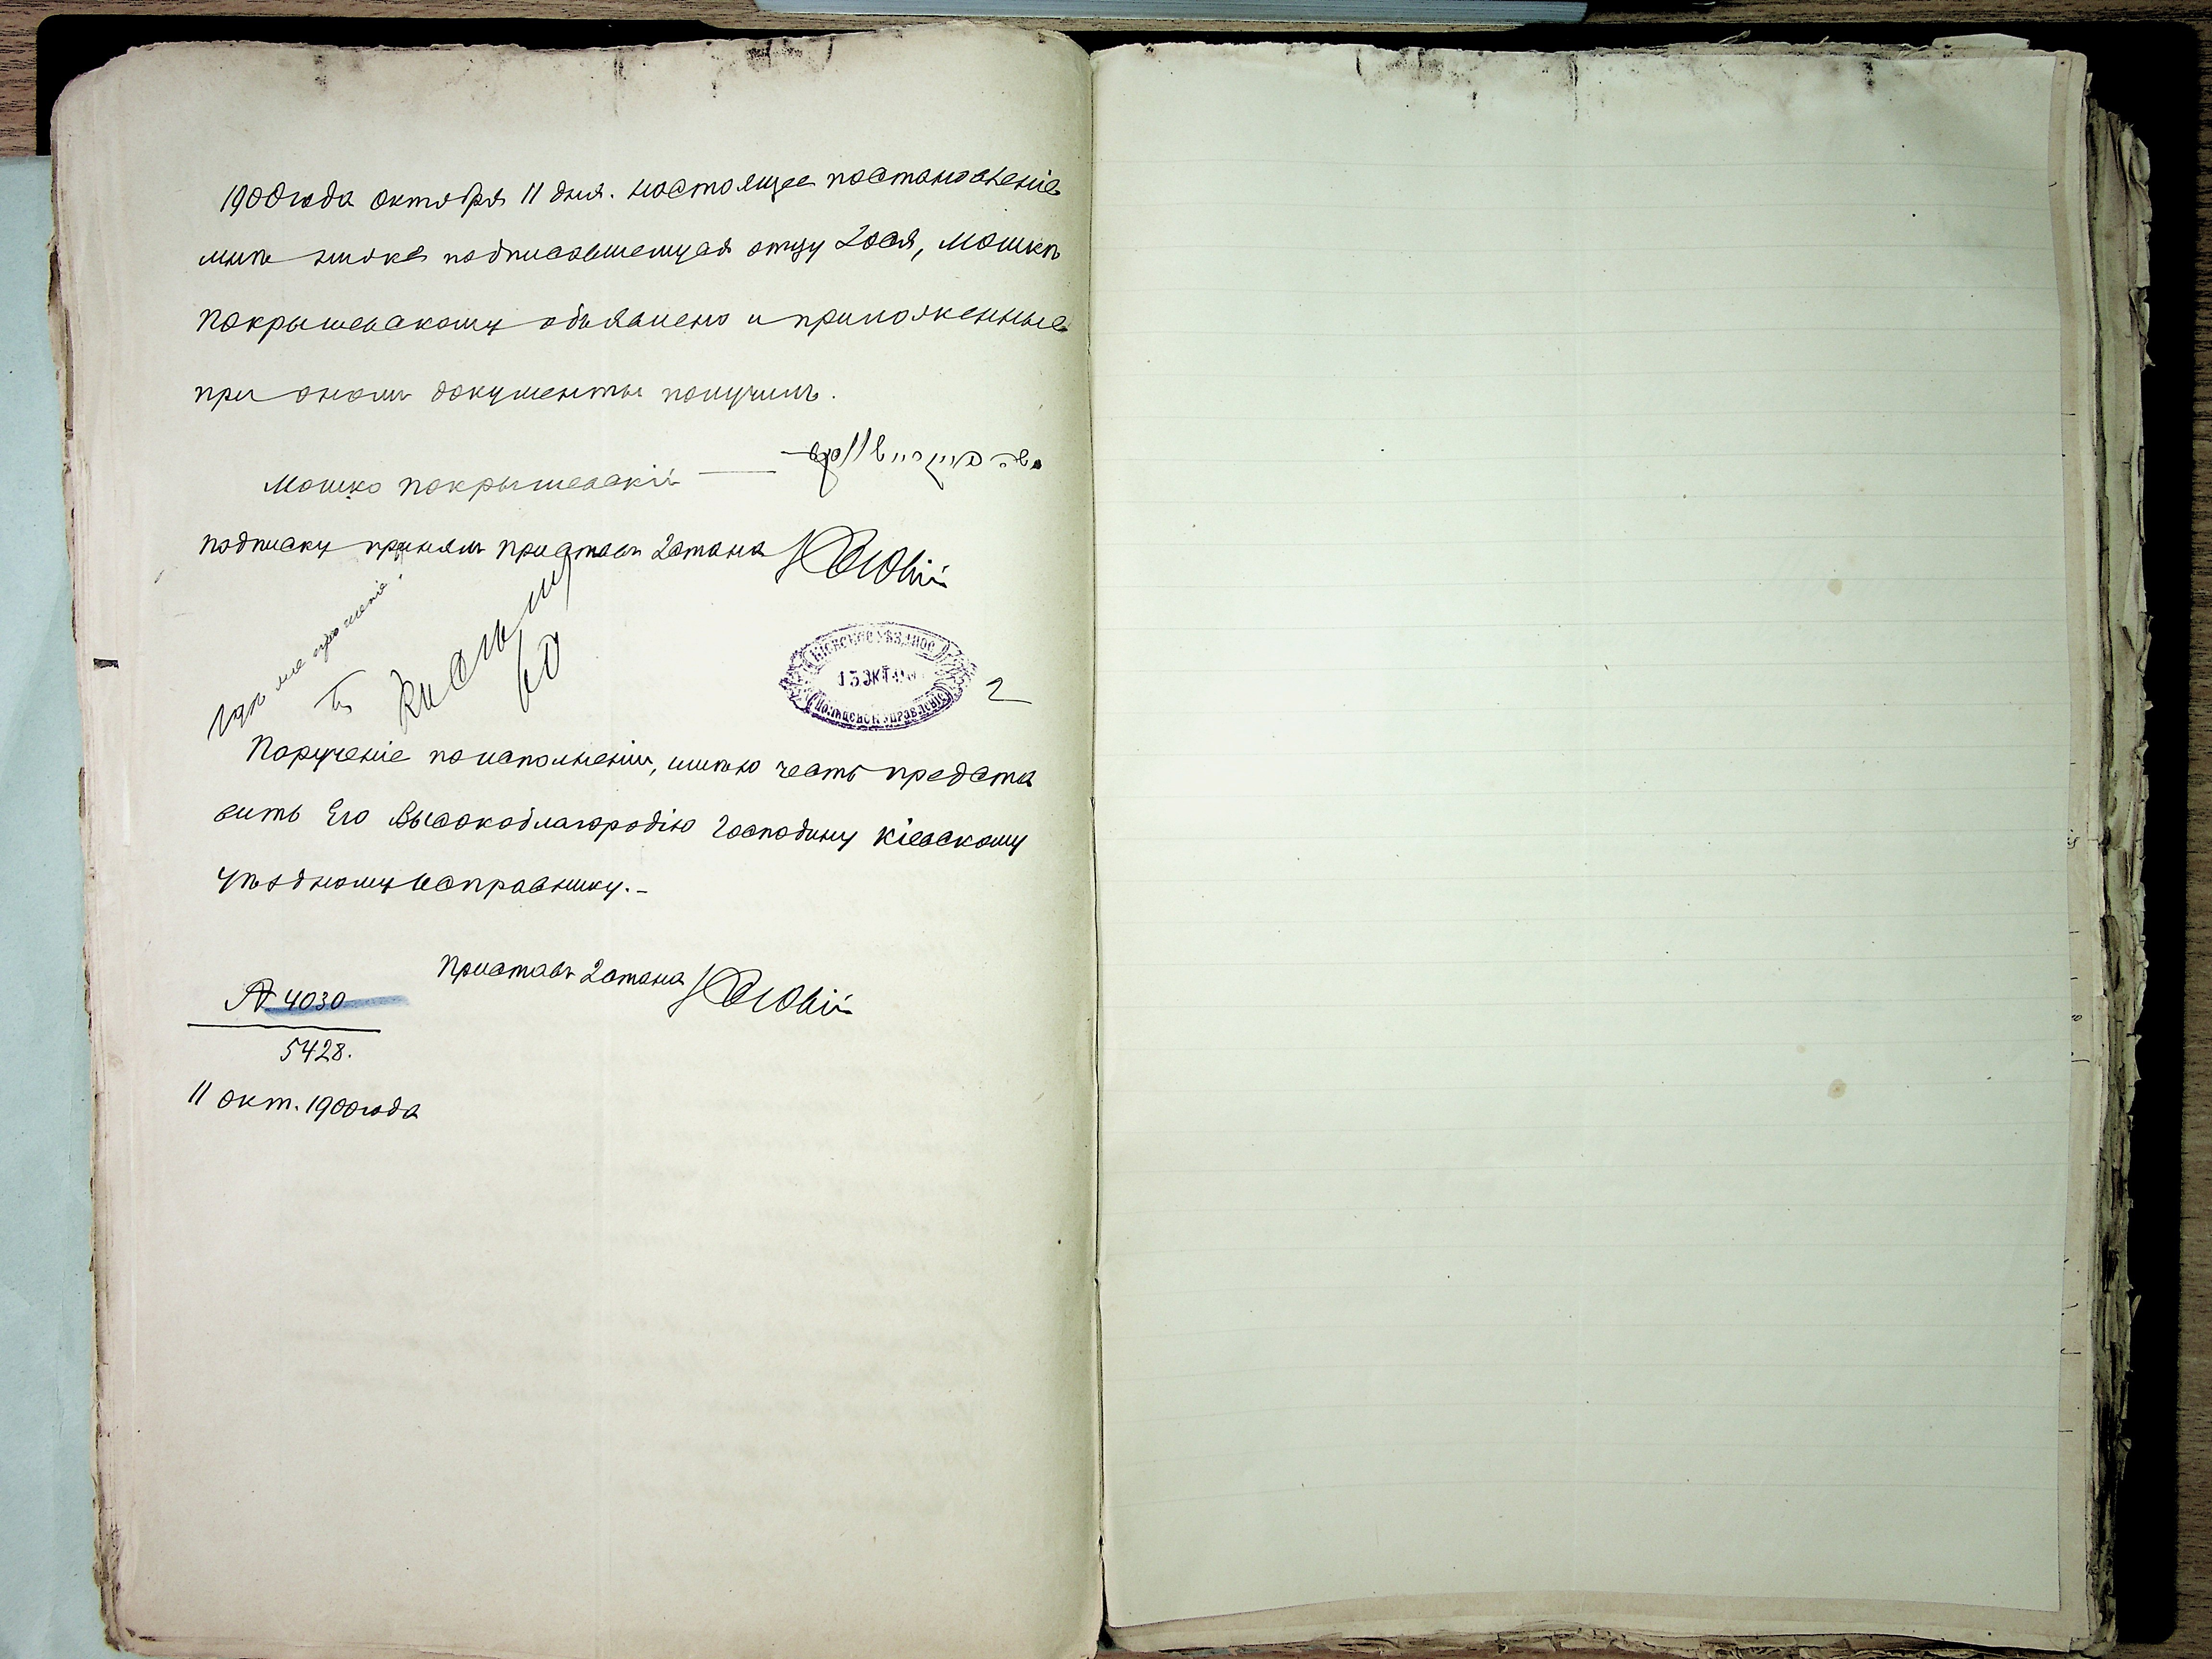 1900 года октября 11 дня. настоящее постановленіе
мнѣ ниже подписавшемуся отцу Іося, Мошкѣ
Покрышевскому объявлено и приложенные
при ономъ документы получилъ.
Мошко Покрышевскій
подписку принялъ приставъ 2 стана
Гдѣ же прошеніе?
Къ
КІЕВСКОЕ УѢЗДНОЕ
13 ОКТ. 90
ПОЛИЦЕЙСК. УПРАВЛЕНІЕ
2
Порученіе по исполненіи, имѣю честь предста
вить Его Высокоблагородію Господину Кіевскому
Уѣздному Исправнику.-
Приставъ 2 стана
№ 4030
5428.
11 окт. 1900 года